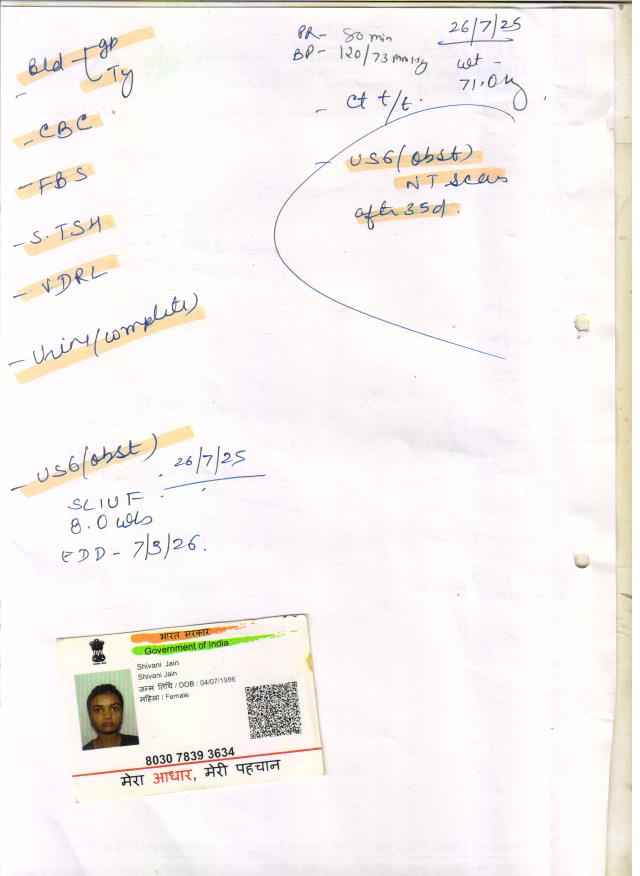 Bld - gp
Ty
- CBC
- FBS
- S.TSH
- VDRL
- Urine (complete)
- USG (obst)
26/7/25
SLIUF
8.0 wks
EDD - 7/3/26.
PR- 80 min
BP- 120/73 mmHg
26/7/25
wt -
71.0 kg
- Ct t/t.
- USG (obst)
NT scan
after 35d.
भारत सरकार
Government of India
Shivani Jain
Shivani Jain
जन्म तिथि / DOB : 04/07/1996
महिला / Female
8030 7839 3634
मेरा आधार, मेरी पहचान